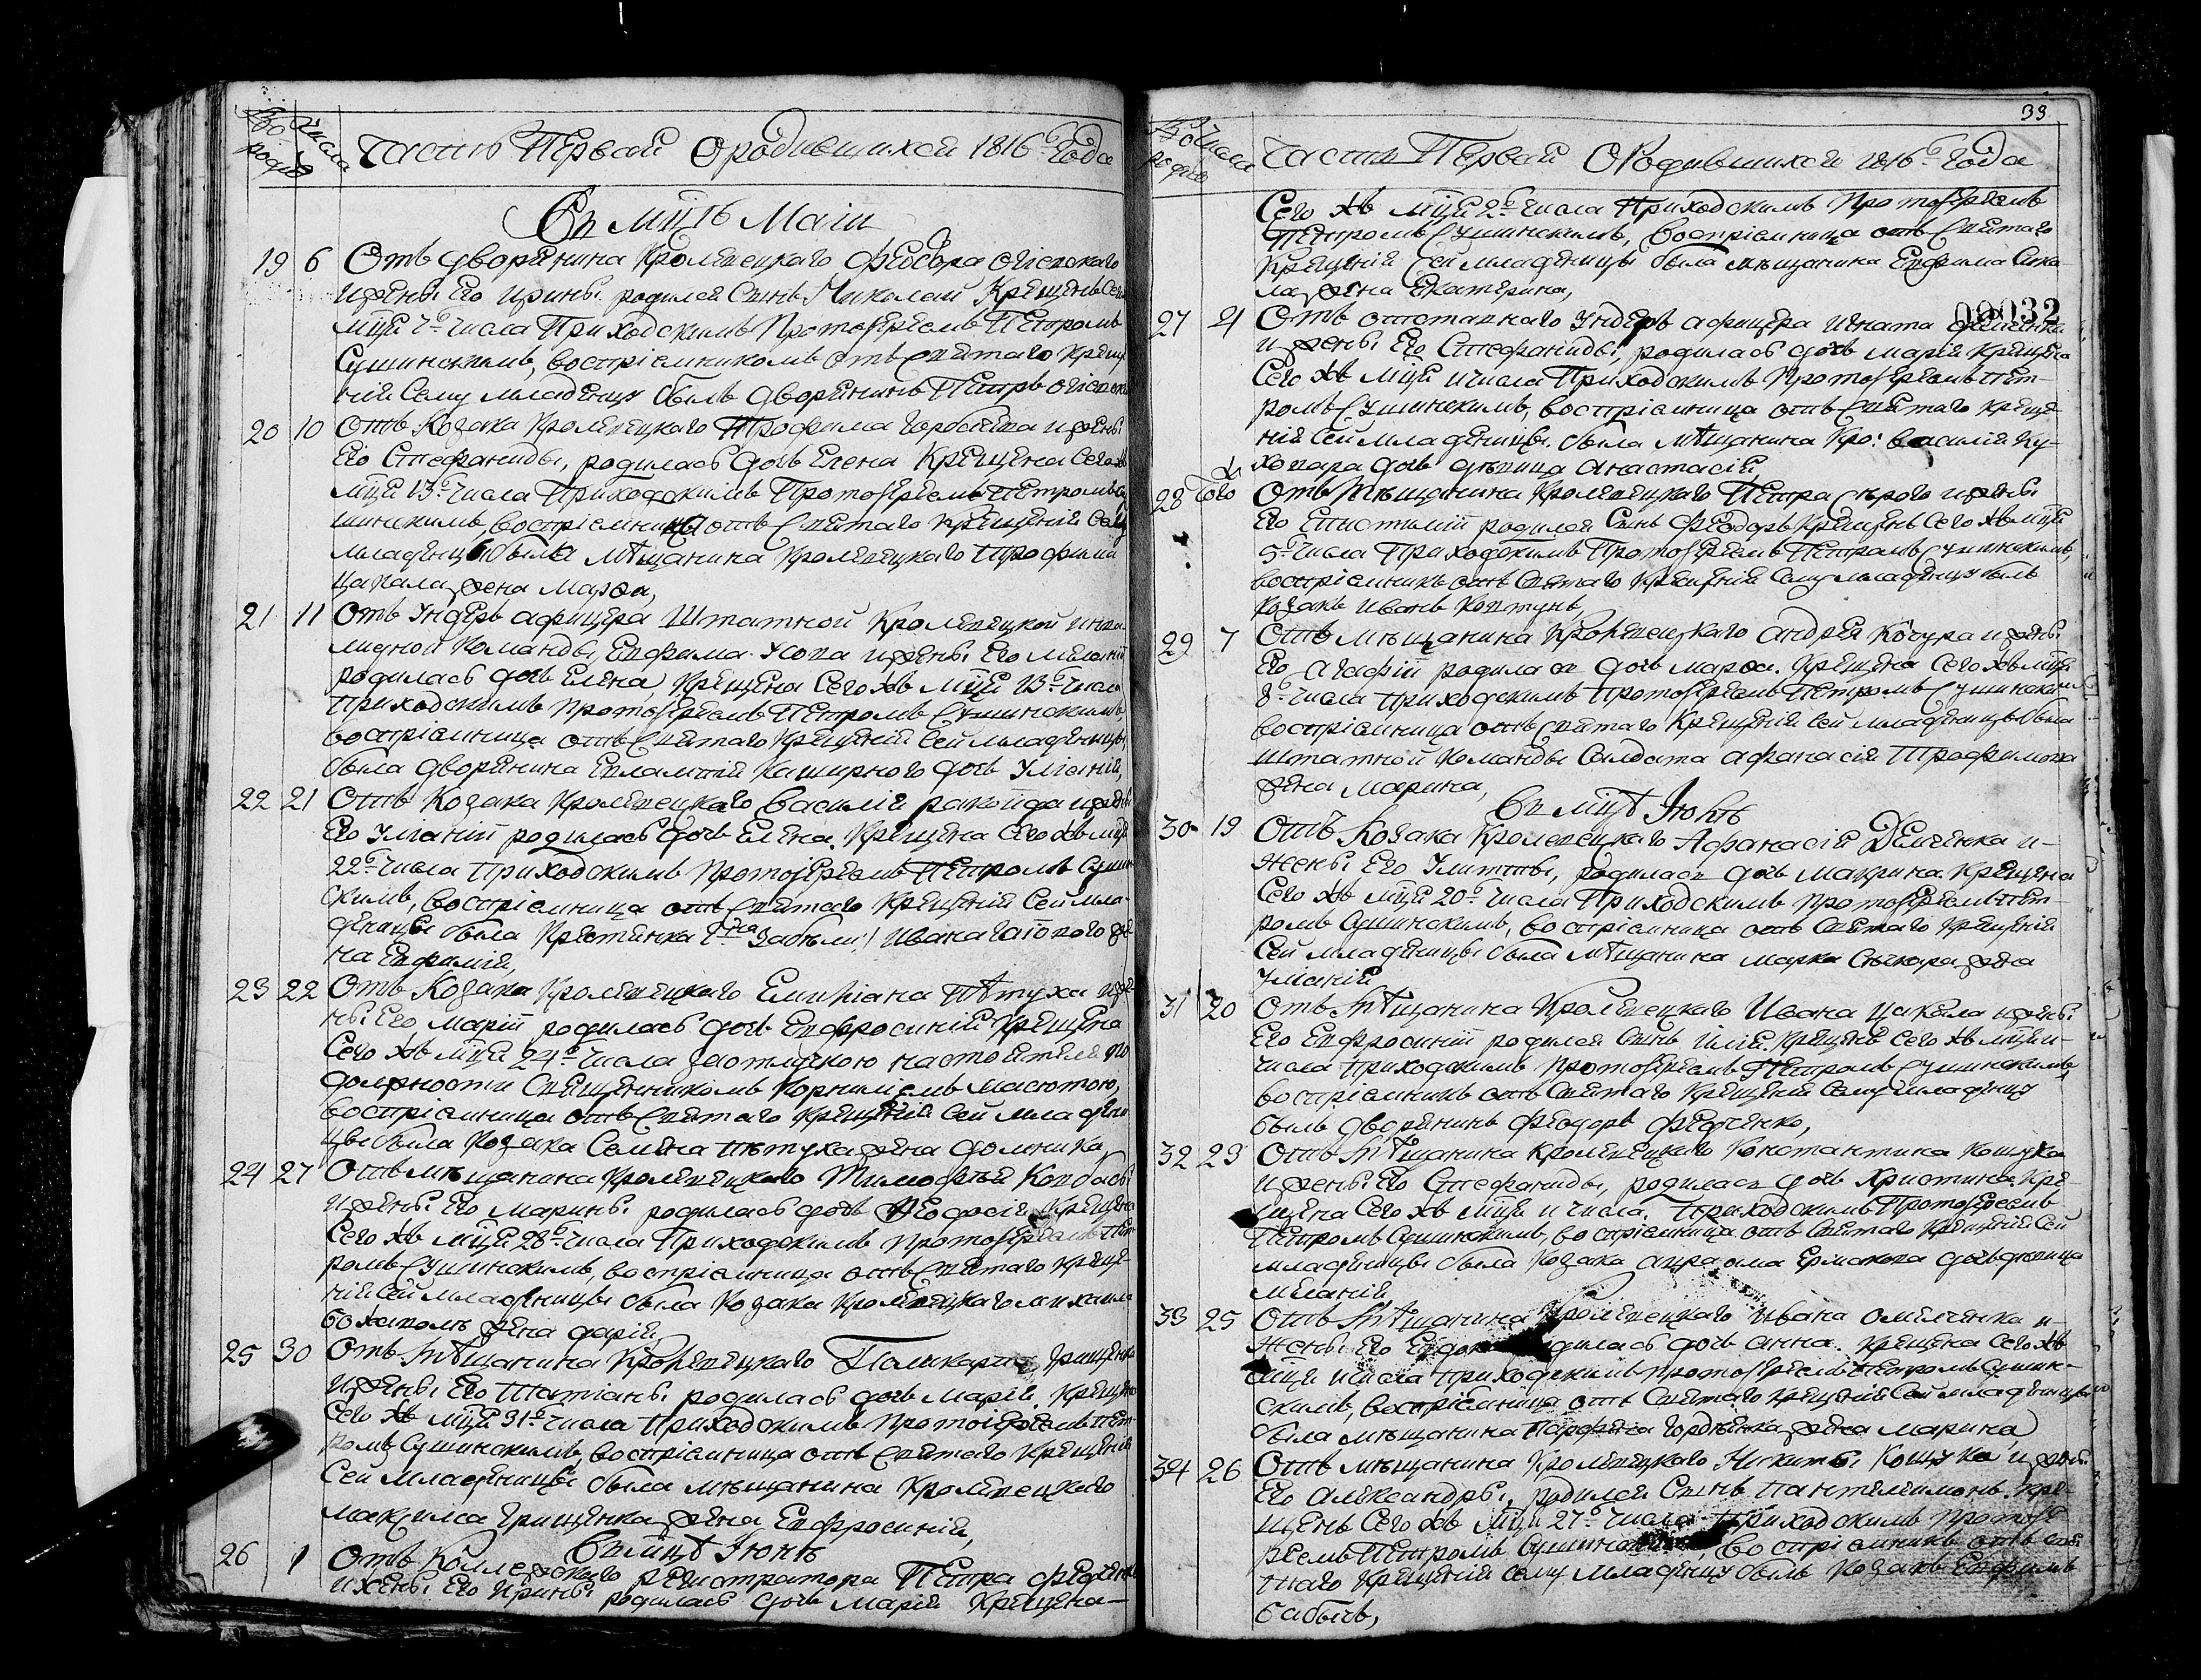 Число родив
Числа
Часть Первая О родившихся 1816го Года
Въ мцѣ Маіи
19 6 Отъ дворянина Кролевецкаго Феодора
и жены Его Ирины родился Сынъ Николай Крещенъ Сего
мця 7го Числа Приходскимъ Протоіереемъ Петромъ
Сушинскимъ, воспріемникомъ отъ Святаго Креще
нія Сему младенцу былъ дворянинъ Петръ
20 10 Отъ Козака Кролевецкаго Трофима и жены
Его Стефаниды, родилась дочь Елена Крещена Сего хв
мця 13го Числа Приходскимъ Протоіереемъ Петромъ Су
шинскимъ, воспріемница отъ Святаго Крещенія Сему
младенцу была мѣщанина Кролевецкаго Трофима
жена Марѳа,
21 11 Отъ Ундеръ афицера Штатной Кролевецкой инва
лидной Команды, Евфима Усова и жены Его Меланіи
родилась дочь Елена, Крещена Сего хв мця 13го Числа
Приходскимъ Протоіереемъ Петромъ Сушинскимъ,
воспріемница отъ Святаго Крещенія Сей младеницы
была дворянина Евлампія Каширного дочь Уліанія,
22 21 Отъ Козака Кролевецкаго Василія и жены
Его Уліаніи родилась дочь Елена. Крещена Сего хв мця
22го Числа Приходскимъ Протоіереемъ Петромъ Сушин
скимъ, воспріемница отъ Святаго Крещенія Сей мла
деницы была Ивана же
на Евфимія,
23 22 Отъ Козака Кролевецкаго Емиліана Пѣтуха и же
ны Его, Маріи родилась дочь Евфросинія Крещена
Сего хв мця 24го Числа за отлучкою настоятеля по
должности Священникомъ Корниліемъ
воспріемница отъ Святаго Крещенія Сей младени
цы была Козака Семена Пѣтуха жена Домника,
24 27 Отъ мѣщанина Кролевецкаго Тимофея Ковбасы
и жены Его Марины родилась дочь Феодосія Крещена
Сего хв мця 28го Числа Приходскимъ Протоіереемъ Пет
ромъ Сушинскимъ, воспріемница отъ Святаго Креще
нія Сей младеницы была Козака Кролевецкаго Михаила
жена Дарія,
25 30 Отъ мѣщанина Кролевецкаго Поликарпа Грищенка
и жены Его Татіаны родилась дочь Марія. Крещена
Сего хв мця 31го Числа Приходскимъ Протоіереемъ Пет
ромъ Сушинскимъ, воспріемница отъ Святаго Крещенія
Сей младеницы была мѣщанина Кролевецкаго
Максима Грищенка жена Евфросинія,
Въ мцѣ Іюнѣ
26 1 Отъ Коллежскаго Регистратора Петра
и жены Его Ирины родилась дочь Марія Крещена
33
Числа
Часть Первая О Родившихся 1816го Года
Сего хв мця 2го Числа Приходскимъ Протоіереемъ
Петромъ Сушинскимъ, воспріемница отъ Святаго
Крещенія Сей младеницы была мѣщанина Евфима
жена Екатерина,
00032
27 2 Отъ отставнаго Ундеръ афицера Игната
и жены Его Стефаниды, родилась дочь Марія Крещена
Сего хв мця и числа Приходскимъ Протоіереемъ Пет
ромъ Сушинскимъ, воспріемница отъ Святаго Креще
нія Сей младеницы была мѣщанина Кро: Василія Ку
хопара дочь дѣвица Анастасія
28 Того Отъ мѣщанина Кролевецкаго Петра Сѣрого и жены
Его Епистиміи родился Сынъ Феодоръ Крещенъ Сего хв мця
5го Числа Приходскимъ Протоіереемъ Петромъ Сушинскимъ,
воспріемникъ отъ Святаго Крещенія Сему младенцу былъ
Козакъ Иванъ Ковтунъ,
29 7 Отъ мѣщанина Кролевецкаго Андрея Кочура и жены
Его Агафіи родилась дочь Марѳа. Крещена Сего хв мця
8го Числа Приходскимъ Протоіереемъ Петромъ Сушинскимъ
воспріемница отъ Святаго Крещенія Сей младеницы была
Штатной Команды Солдата Афанасія Трофимова
жена Марина,
Въ мцѣ Іюнѣ
30 19 Отъ Козака Кролевецкаго Афанасія Демченка и
жены Его Улитты, родилась дочь Макрина. Крещена
Сего хв мця 20го Числа Приходскимъ Протоіереемъ Пет
ромъ Сушинскимъ, воспріемница отъ Святаго Крещенія
Сей младеницы была мѣщанина Марка жена
Уліанія
31 20 Отъ мѣщанина Кролевецкаго Ивана и жены
Его Евфросиніи родился Сынъ Илія. Крещенъ Сего хв мця и
числа Приходскимъ Протоіереемъ Петромъ Сушинскимъ,
воспріемникъ отъ Святаго Крещенія Сему младенцу
былъ дворянинъ Феодоръ Федченко,
32 23 Отъ мѣщанина Кролевецкаго Константина Кощука
и жены Его Стефаниды, родилась дочь Христина. Кре
щена Сего хв мця и числа. Приходскимъ Протоіереемъ
Петромъ Сушинскимъ, воспріемница отъ Святаго Крещенія Сей
младеницы была Козака Авраама Ермакова дочь дѣвица
Меланія,
33 25 Отъ мѣщанина Кролевецкаго Ивана Омелченка и
жены Его родилась дочь Анна. Крещена Сего хв
мця и числа Приходскимъ Протоіереемъ Петромъ Сушин
скимъ, воспріемница отъ Святаго Крещенія Сей младеницы
была мѣщанина Парфена Гордѣенка жена Марина,
34 26 Отъ мѣщанина Кролевецкаго Никиты Кощука и жены
Его Александры, родился Сынъ Пантелеимонъ. Кре
щенъ Сего хв мця 27го Числа Приходскимъ Протоіе
реемъ Петромъ Сушинскимъ, воспріемникъ отъ Свя
таго Крещенія Сему младенцу былъ Козакъ Евфимъ
Бабичъ,